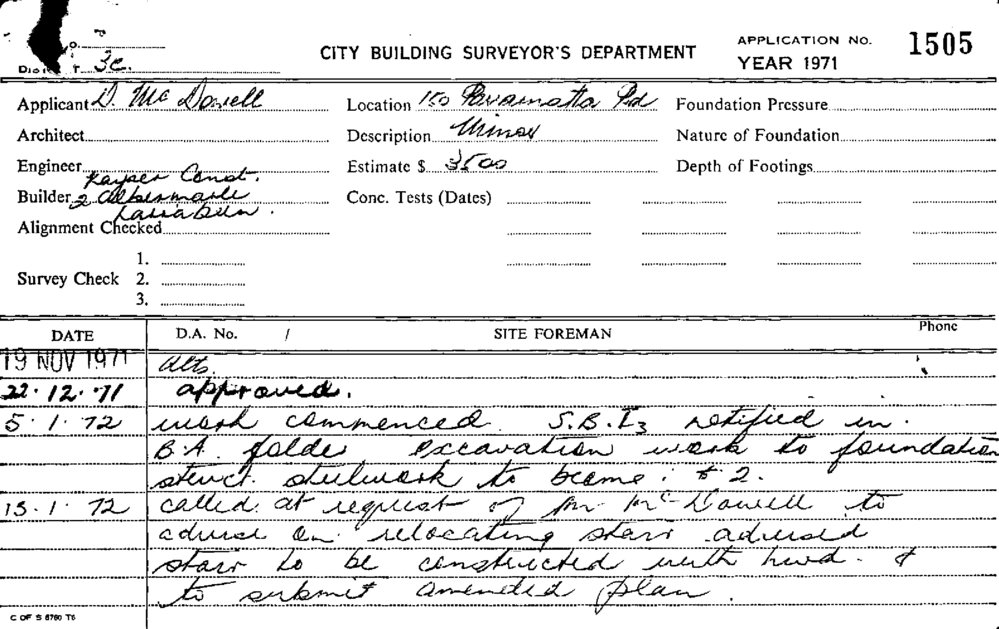 CITY BUILDING SURVEYOR'S DEPARTMENT
APPLICATION No. 1505
YEAR 1971
3c.
Applicant D. McDowell
Location 150 Parramatta Rd
Foundation Pressure
Architect
Description Minor
Nature of Foundation
Engineer
Estimate $ 3500
Depth of Footings
Kayser Const.
Builder 2 Albermarle
Conc. Tests (Dates)
Alignment Checked
Survey Check 1.
2.
3.
DATE D.A. No. / SITE FOREMAN Phone
19 NOV 1971 Alts.
22.12.71 approved.
5.1.72 work commenced. S.B.I3 notified in.
B.A. folder excavation work to foundation
struct. steelwork to 2.
13.1.72 called at request of Mr McDowell to
advise on relocating stair advised
stair to be constructed with hwd. &
to submit amended plan.
C OF S 6780 T6